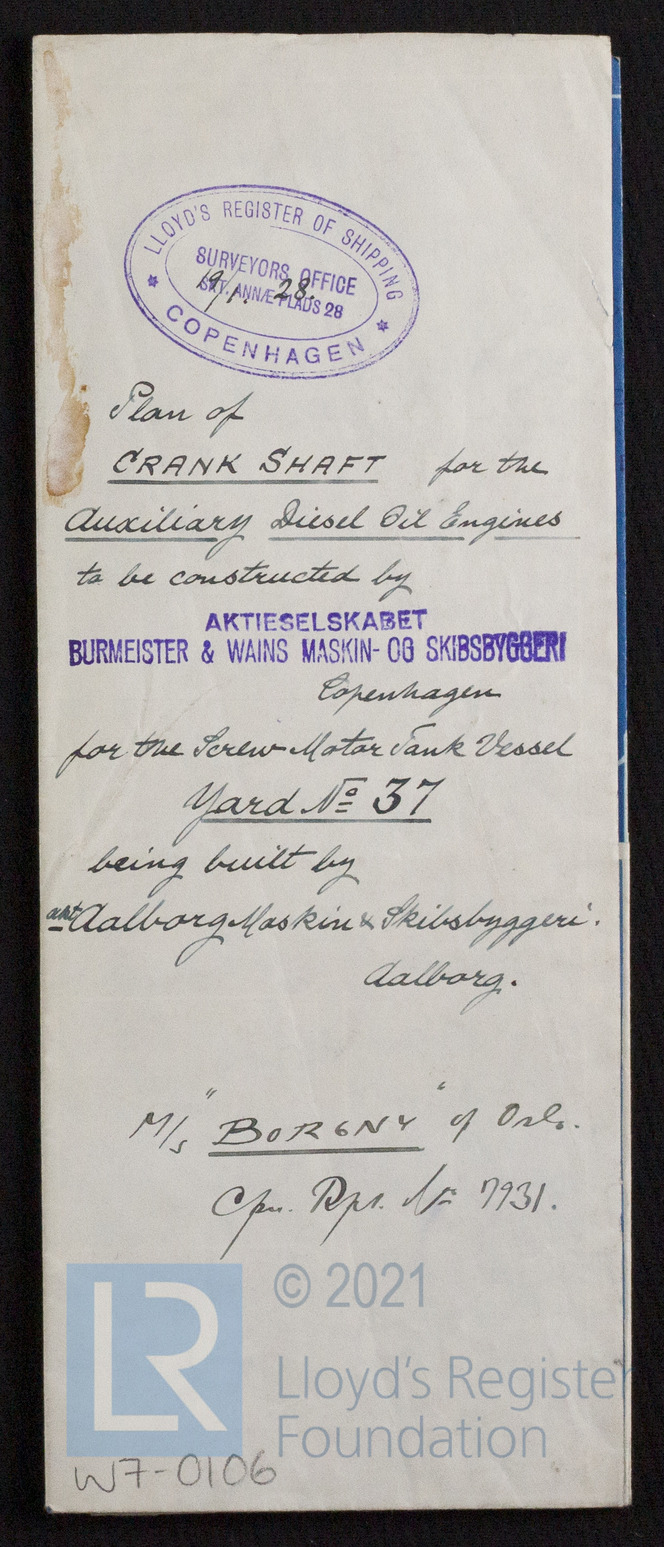 LLOYD'S REGISTER OF SHIPPING
SURVEYORS OFFICE
19/1. 28.
SKT. ANNÆ PLADS 28
COPENHAGEN
Plan of
CRANK SHAFT for the
Auxiliary Diesel Oil Engines
to be constructed by
AKTIESELSKABET
BURMEISTER & WAINS MASKIN- OG SKIBSBYGGERI
Copenhagen
for the Screw Motor Tank Vessel
Yard No 37
being built by
akt Aalborg Maskin & Skibsbyggeri.
Aalborg.
M/s "BORGNY" of Oslo.
Cpn. Rpt. No 7931.
LR
© 2021
Lloyd's Register
Foundation
W7-0106